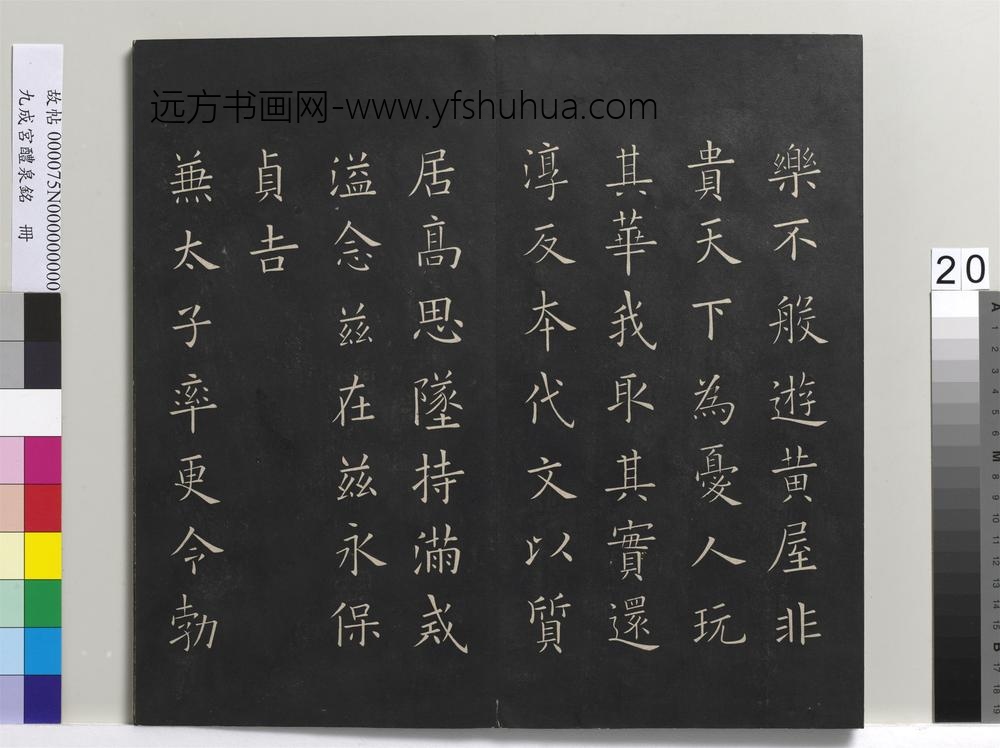 远方书画网-www.yfshuhua.com
樂不般遊黄屋非
貴天下為憂人玩
其華我取其實還
淳反本代文以質
居高思墜持滿戒
溢念茲在茲永保
貞吉
兼太子率更令勃
故帖 000075N000000000
九成宮醴泉銘 冊
20
A 1 2 3 4 5 6 M 8 9 10 11 12 13 14 15 B 17 18 19